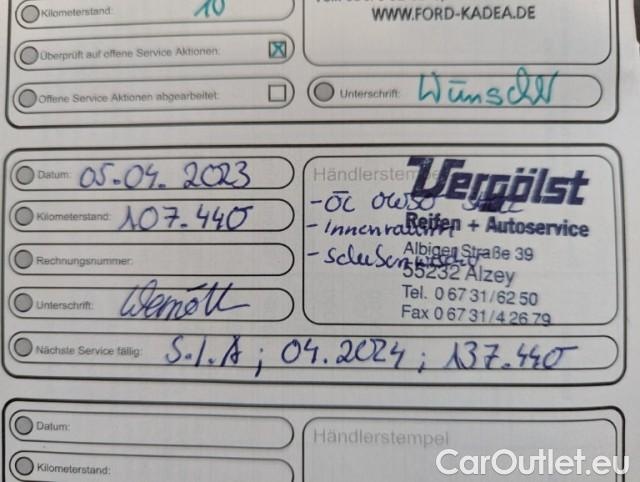 Kilometerstand: 10
WWW.FORD-KADEA.DE
Überprüft auf offene Service Aktionen: X
Offene Service Aktionen abgearbeitet:
Unterschrift: Wünscher
Datum: 05.04. 2023
Händlerstempel
Vergölst
Kilometerstand: 107.440
- ÖL 0W30
Reifen + Autoservice
- Innenraum
Rechnungsnummer:
Albiger Straße 39
55232 Alzey
Unterschrift:
Tel. 0 67 31/62 50
Fax 0 67 31/4 26 79
Nächste Service fällig: S.I.A ; 04.2024 ; 137.440
Datum:
Händlerstempel
Kilometerstand:
CarOutlet.eu